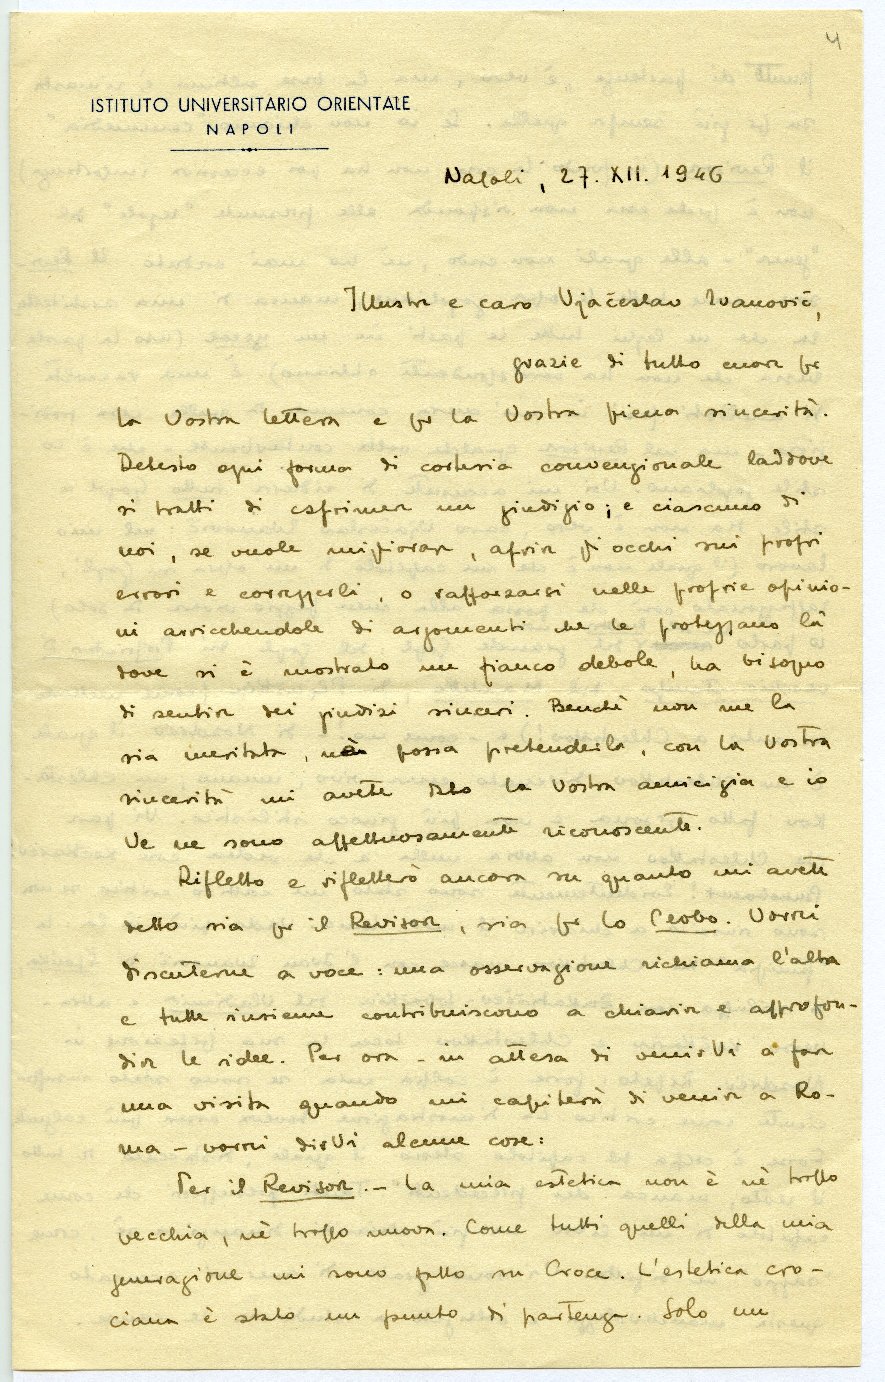 4
ISTITUTO UNIVERSITARIO ORIENTALE
NAPOLI
Napoli, 27. XII. 1946
Illustre e caro Vjačeslav Ivanovič,
grazie di tutto cuore per
la Vostra lettera e per la Vostra piena sincerità.
Detesto ogni forma di cortesia convenzionale laddove
si tratti di esprimere un giudizio; e ciascuno di
noi, se vuole migliorare, aprire gli occhi sui propri
errori e correggerli, o rafforzarsi nelle proprie opinio-
ni arricchendole di argomenti che le proteggano là
dove si è mostrato un fianco debole, ha bisogno
di sentire dei giudizi sinceri. Benchè non me la
sia meritata, nè possa pretenderla, con la Vostra
sincerità mi avete dato la Vostra amicizia e io
Ve ne sono affettuosamente riconoscente.
Rifletto e rifletterò ancora su quanto mi avete
detto sia per il Revisore, sia per lo Slovo. Vorrei
discuterne a voce: una osservazione richiama l'altra
e tutte insieme contribuiscono a chiarire e approfon-
dire le idee. Per ora – in attesa di venirVi a fare
una visita quando mi capiterà di venire a Ro-
ma – vorrei dirVi alcune cose:
Per il Revisore. – La mia estetica non è nè troppo
vecchia, nè troppo nuova. Come tutti quelli della mia
generazione mi sono fatto su Croce. L'estetica cro-
ciana è stato un punto di partenza. Solo un